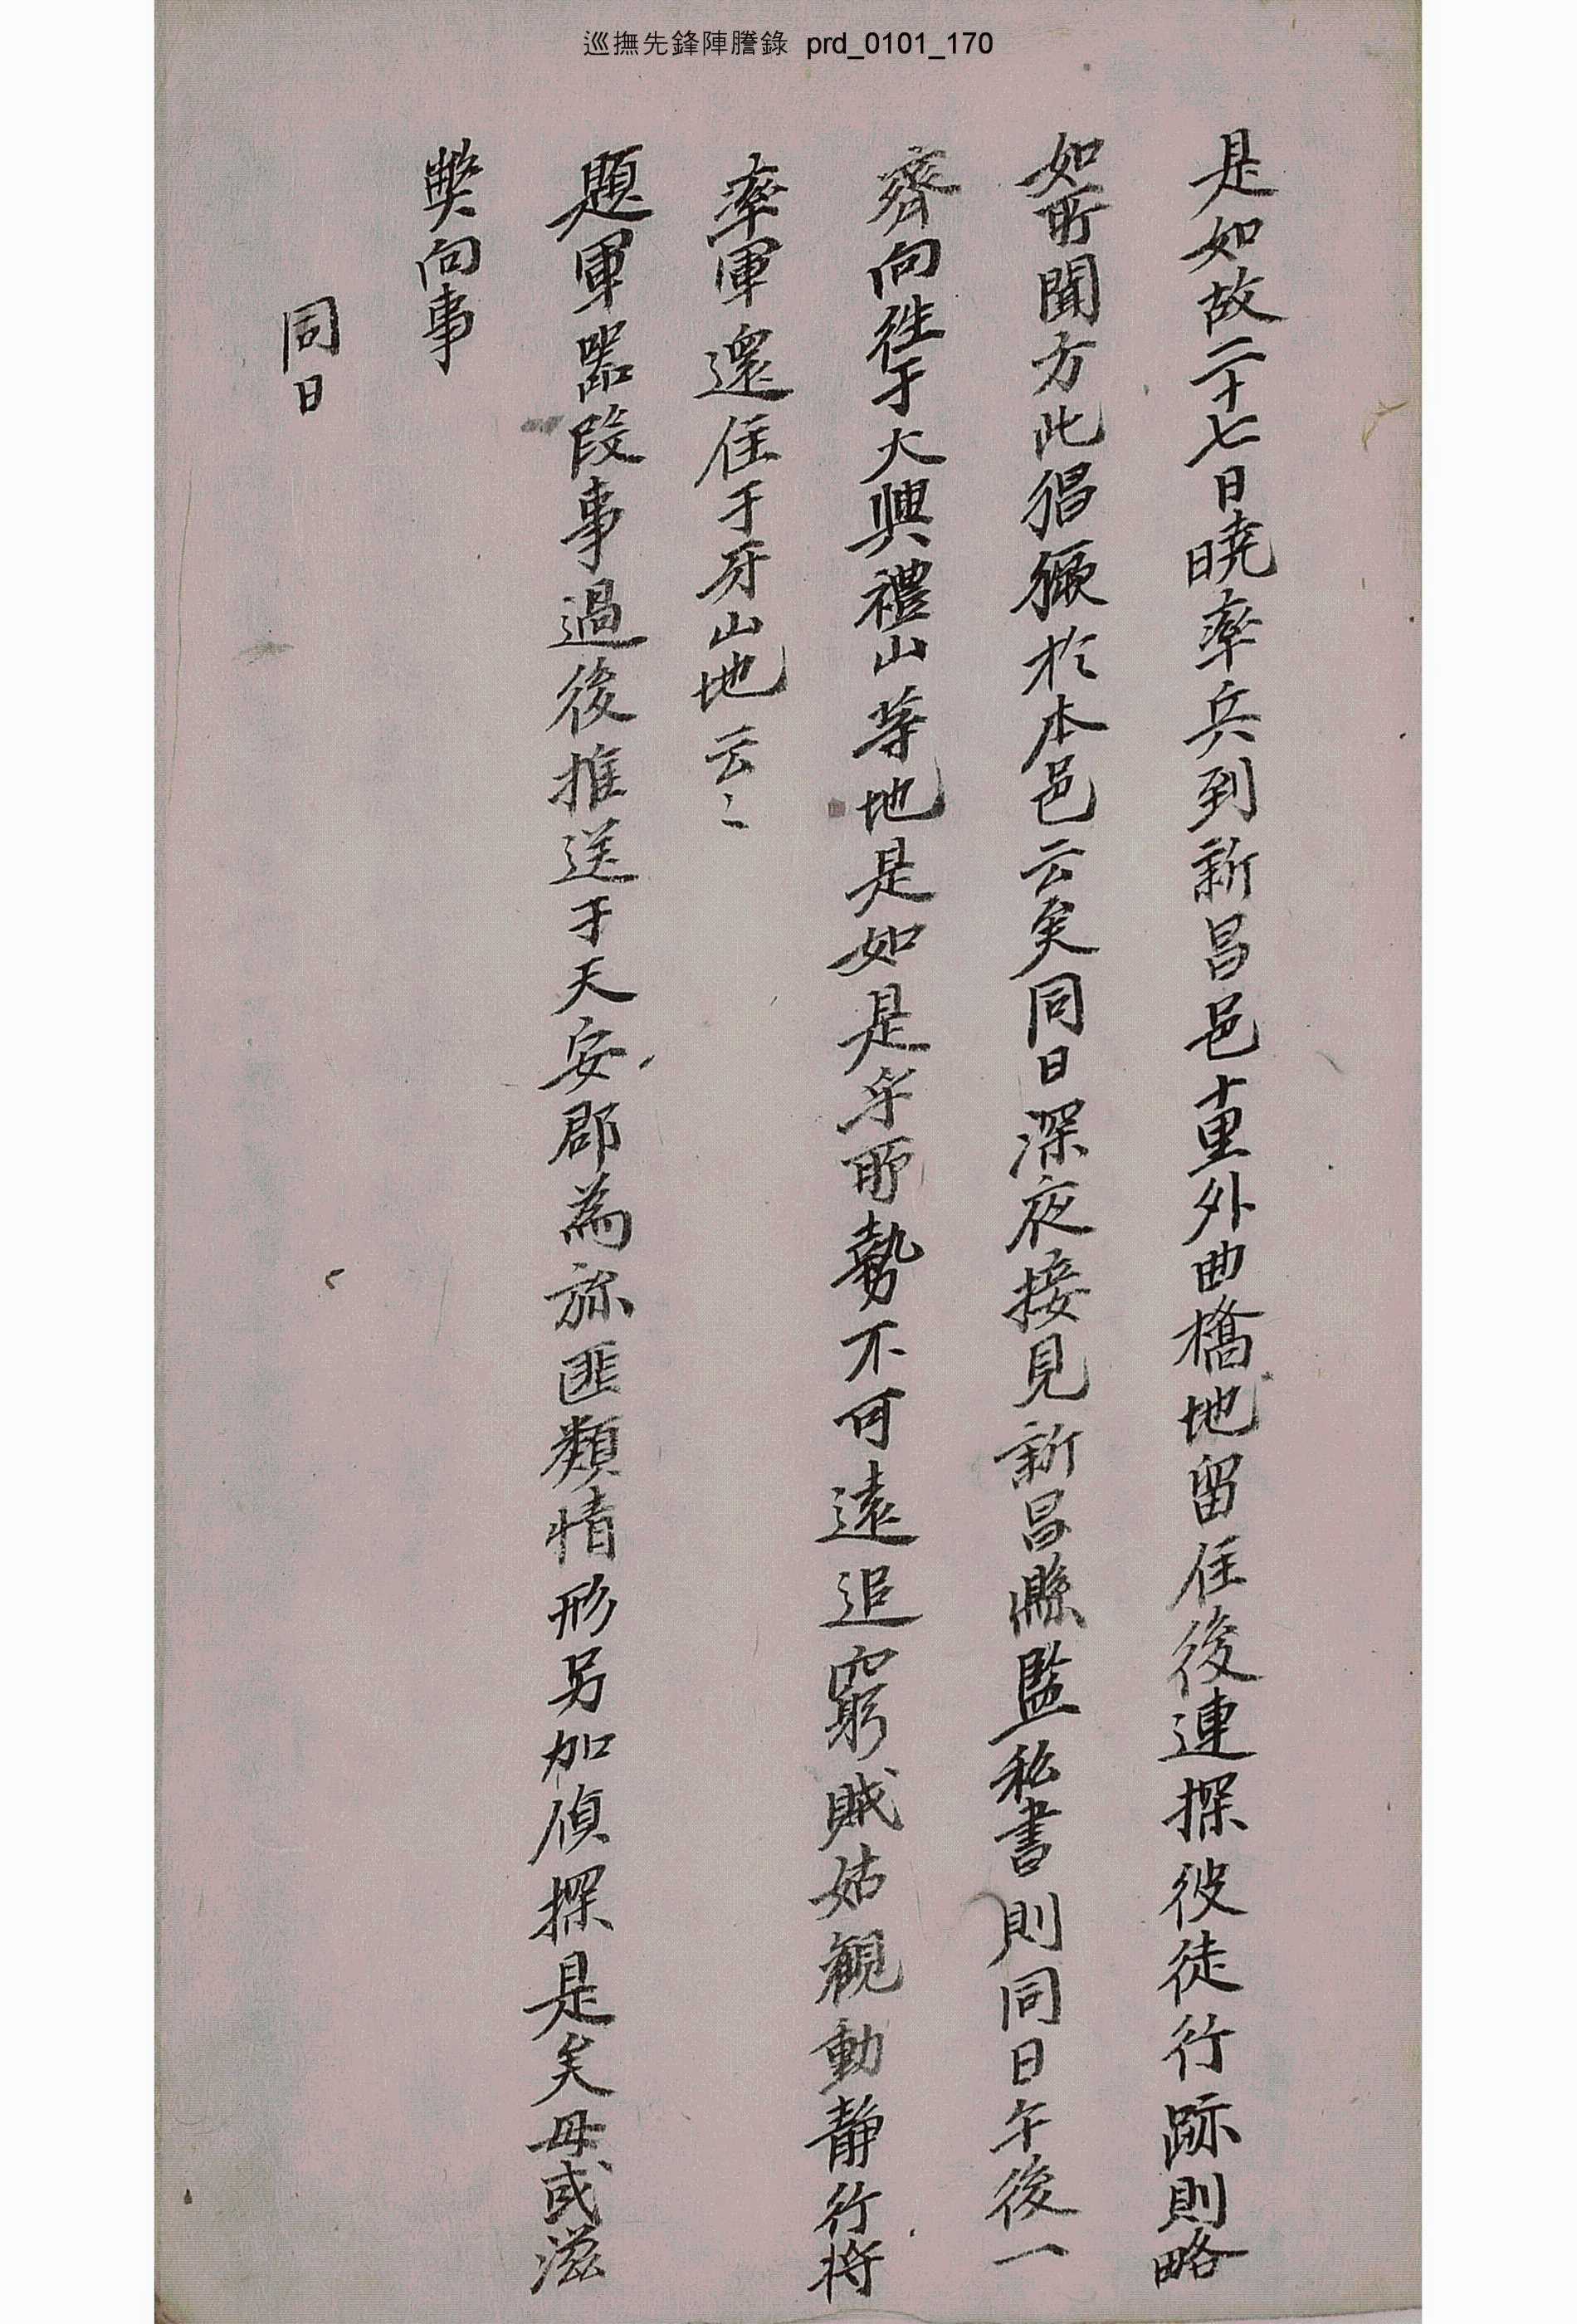 巡撫先鋒陣謄錄 prd_0101_170
是如故二十七日曉率兵到新昌邑十里外曲橋地留住後連探彼徒行跡則略
如所聞方此猖獗於本邑云矣同日深夜接見新昌縣監私書則同日午後一
齊向徃于大興禮山等地是如是乎所勢不可遠追窮賊姑觀動静行將
率軍還住于牙山地云〻
題軍器段事過後推送于天安郡為旀匪類情形另加偵探是矣毋或滋
獘向事
同日